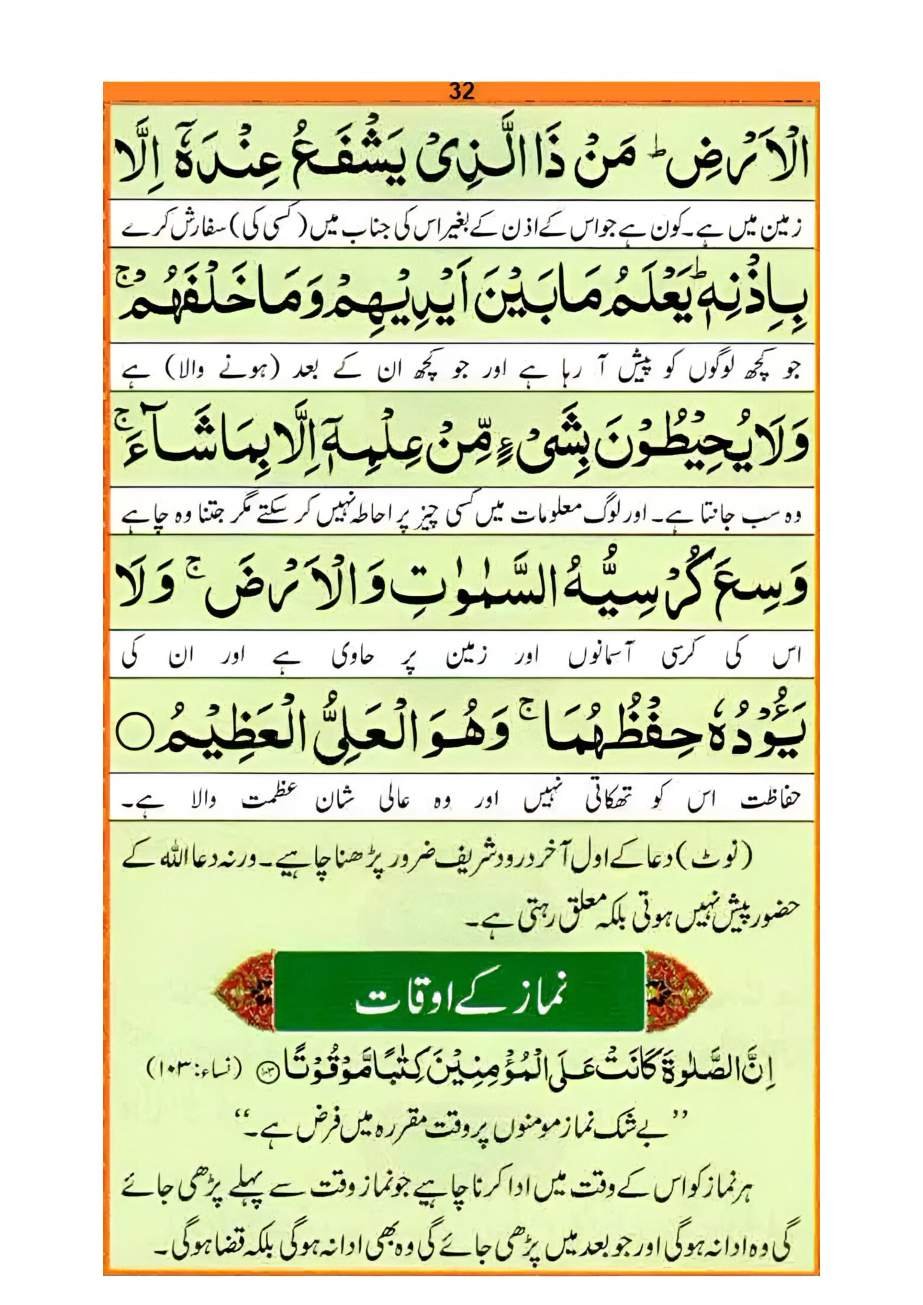 32
الْاَرْضِ ؕ مَنْ ذَا الَّذِیْ یَشْفَعُ عِنْدَهٗۤ اِلَّا
زمین میں ہے۔ کون ہے جو اس کے اذن کے بغیر اس کی جناب میں (کسی کی) سفارش کرے
بِاِذْنِهٖ ؕ یَعْلَمُ مَا بَیْنَ اَیْدِیْهِمْ وَ مَا خَلْفَهُمْ ۚ
جو کچھ لوگوں کو پیش آ رہا ہے اور جو کچھ ان کے بعد (ہونے والا) ہے
وَ لَا یُحِیْطُوْنَ بِشَیْءٍ مِّنْ عِلْمِهٖۤ اِلَّا بِمَا شَآءَ ۚ
وہ سب جانتا ہے۔ اور لوگ معلومات میں کسی چیز پر احاطہ نہیں کر سکتے مگر جتنا وہ چاہے
وَسِعَ كُرْسِیُّهُ السَّمٰوٰتِ وَ الْاَرْضَ ۚ وَ لَا
اس کی کرسی آسمانوں اور زمین پر حاوی ہے اور ان کی
یَـُٔوْدُهٗ حِفْظُهُمَا ۚ وَ هُوَ الْعَلِیُّ الْعَظِیْمُ ○
حفاظت اس کو تھکاتی نہیں اور وہ عالی شان عظمت والا ہے۔
(نوٹ) دعا کے اول آخر درود شریف ضرور پڑھنا چاہیے۔ ورنہ دعا اللہ کے
حضور پیش نہیں ہوتی بلکہ معلق رہتی ہے۔
نماز کے اوقات
اِنَّ الصَّلٰوةَ كَانَتْ عَلَی الْمُؤْمِنِیْنَ كِتٰبًا مَّوْقُوْتًا ﴿۱۰۳﴾ (نساء: ۱۰۳)
’’بے شک نماز مومنوں پر وقت مقررہ میں فرض ہے۔‘‘
ہر نماز کو اس کے وقت میں ادا کرنا چاہیے جو نماز وقت سے پہلے پڑھی جائے
گی وہ ادا نہ ہوگی اور جو بعد میں پڑھی جائے گی وہ بھی ادا نہ ہوگی بلکہ قضا ہوگی۔